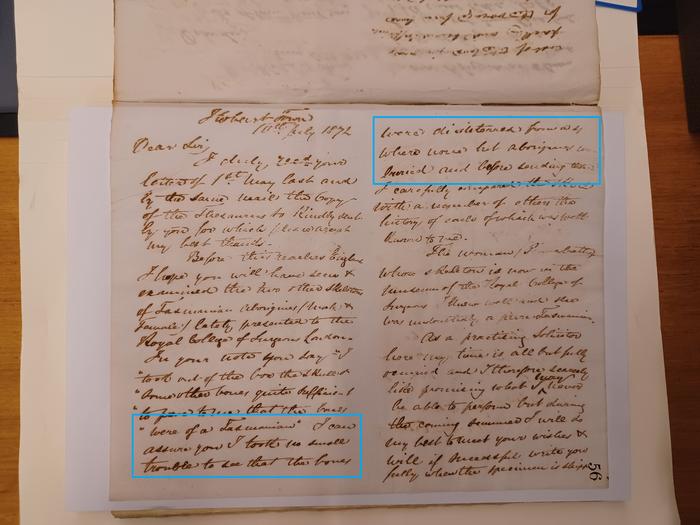 Hobart Town
11th July 1872
Dear Sir,
I duly recd your
letter of 1st May last and
by the same mail the copy
of the Thesaurus so kindly sent
by you for which please accept
my best thanks.
Before this reaches England
I hope you will have seen &
examined the two other skeletons
of Tasmanian Aborigines (male &
female) lately presented to the
Royal College of Surgeons London.
In your note you say "I
"took out of the box the skull &
"some other bones quite sufficient
"to prove to me that the bones
"were of a Tasmanian" I can
assure you I took no small
trouble to see that the bones
were disinterred from a
where none but aborigines
buried and before sending them
I carefully compared the skull
with a number of others the
history of each of which was well
known to me.
The woman,
whose skeleton is now in the
museum of the Royal College of
Surgeons I knew well and she
was undoubtedly a pure Tasmanian.
As a practising Solicitor
here my time is all but fully
occupied and I therefore scarcely
like promising what I may never
be able to perform but during
the coming summer I will do
my best to meet your wishes &
will if successful write you
fully when the specimen is
56